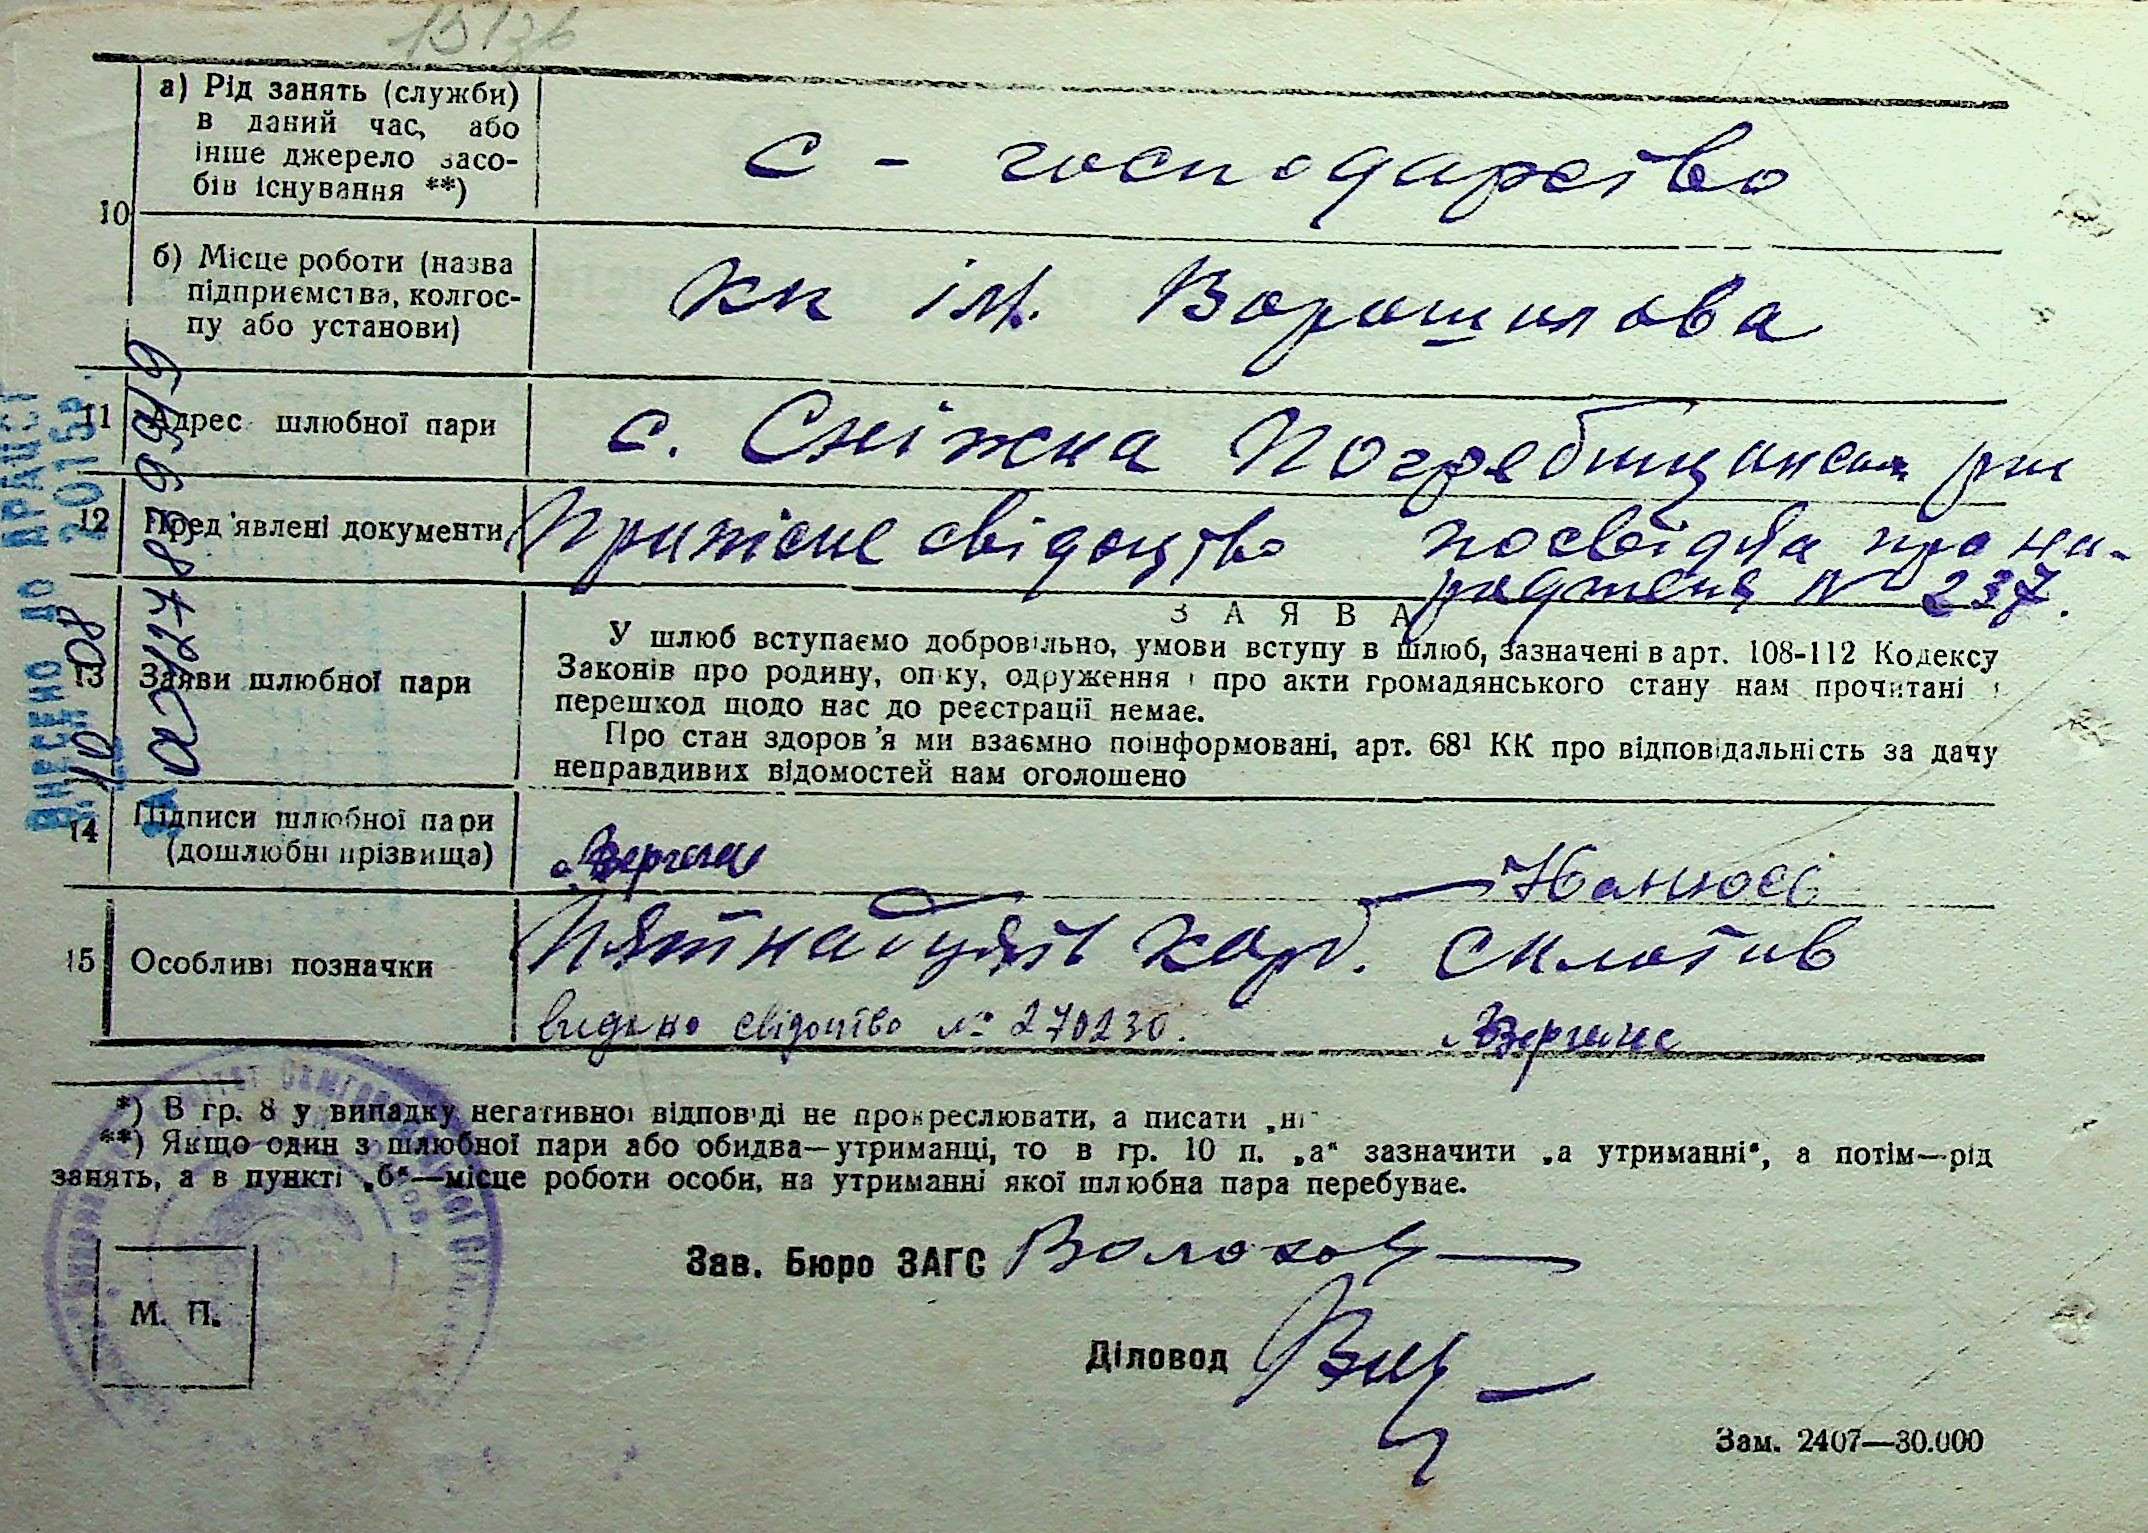 а) Рід занять (служби)
в даний час, або
інше джерело засо-
бів існування **)
с - господарство
10
б) Місце роботи (назва
підприємства, колгос-
пу або установи)
кк ім. Ворошилова
11 Адрес шлюбної пари
с. Сніжна Погребищенськ рн
12 Пред'явлені документи
свідоцтво посвідка про на-
родження № 237.
ЗАЯВА
13 Заяви шлюбної пари
У шлюб вступаємо добровільно, умови вступу в шлюб, зазначені в арт. 108-112 Кодексу
Законів про родину, опіку, одруження і про акти громадянського стану нам прочитані і
перешкод щодо нас до реєстрації немає.
Про стан здоров'я ми взаємно поінформовані, арт. 68¹ КК про відповідальність за дачу
неправдивих відомостей нам оголошено
14 Підписи шлюбної пари
(дошлюбні прізвища)
15 Особливі позначки
Пятнадцять карб. сплатив
видано свідоцтво № 270230.
*) В гр. 8 у випадку негативної відповіді не прокреслювати, а писати „ні"
**) Якщо один з шлюбної пари або обидва—утриманці, то в гр. 10 п. „а“ зазначити „а утриманні“, а потім—рід
занять, а в пункті „б“—місце роботи особи, на утриманні якої шлюбна пара перебуває.
Зав. Бюро ЗАГС
М. П.
Діловод
Зам. 2407—30.000
ВНЕСЕНО ДО ДРАЦСГ
10 08 2015р.